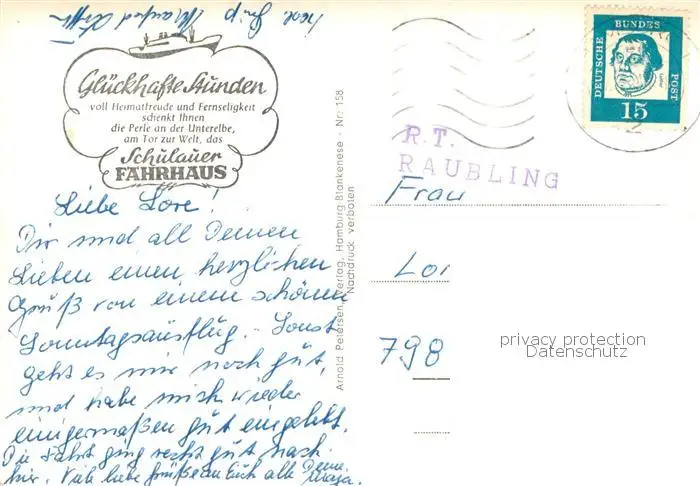 herzl. Gruß Manfred
Glückhafte Stunden
voll Heimatfreude und Fernseligkeit
schenkt Ihnen
die Perle an der Unterelbe,
am Tor zur Welt, das
Schulauer
FÄHRHAUS
Liebe Lore!
Dir und all Deinen
Lieben einen herzlichen
Gruß von einem schönen
Sonntagsausflug. - Sonst
geht es mir noch gut,
und habe mich wieder
einigermaßen gut eingelebt.
Die Fahrt ging recht gut nach
hier. Viele liebe Grüße an Euch alle Deine
Arnold Petersen, Verlag, Hamburg-Blankenese · Nr. 158
Nachdruck verboten
DEUTSCHE
BUNDES
POST
15
R.T.
RAUBLING
Frau
Lor
798
privacy protection
Datenschutz